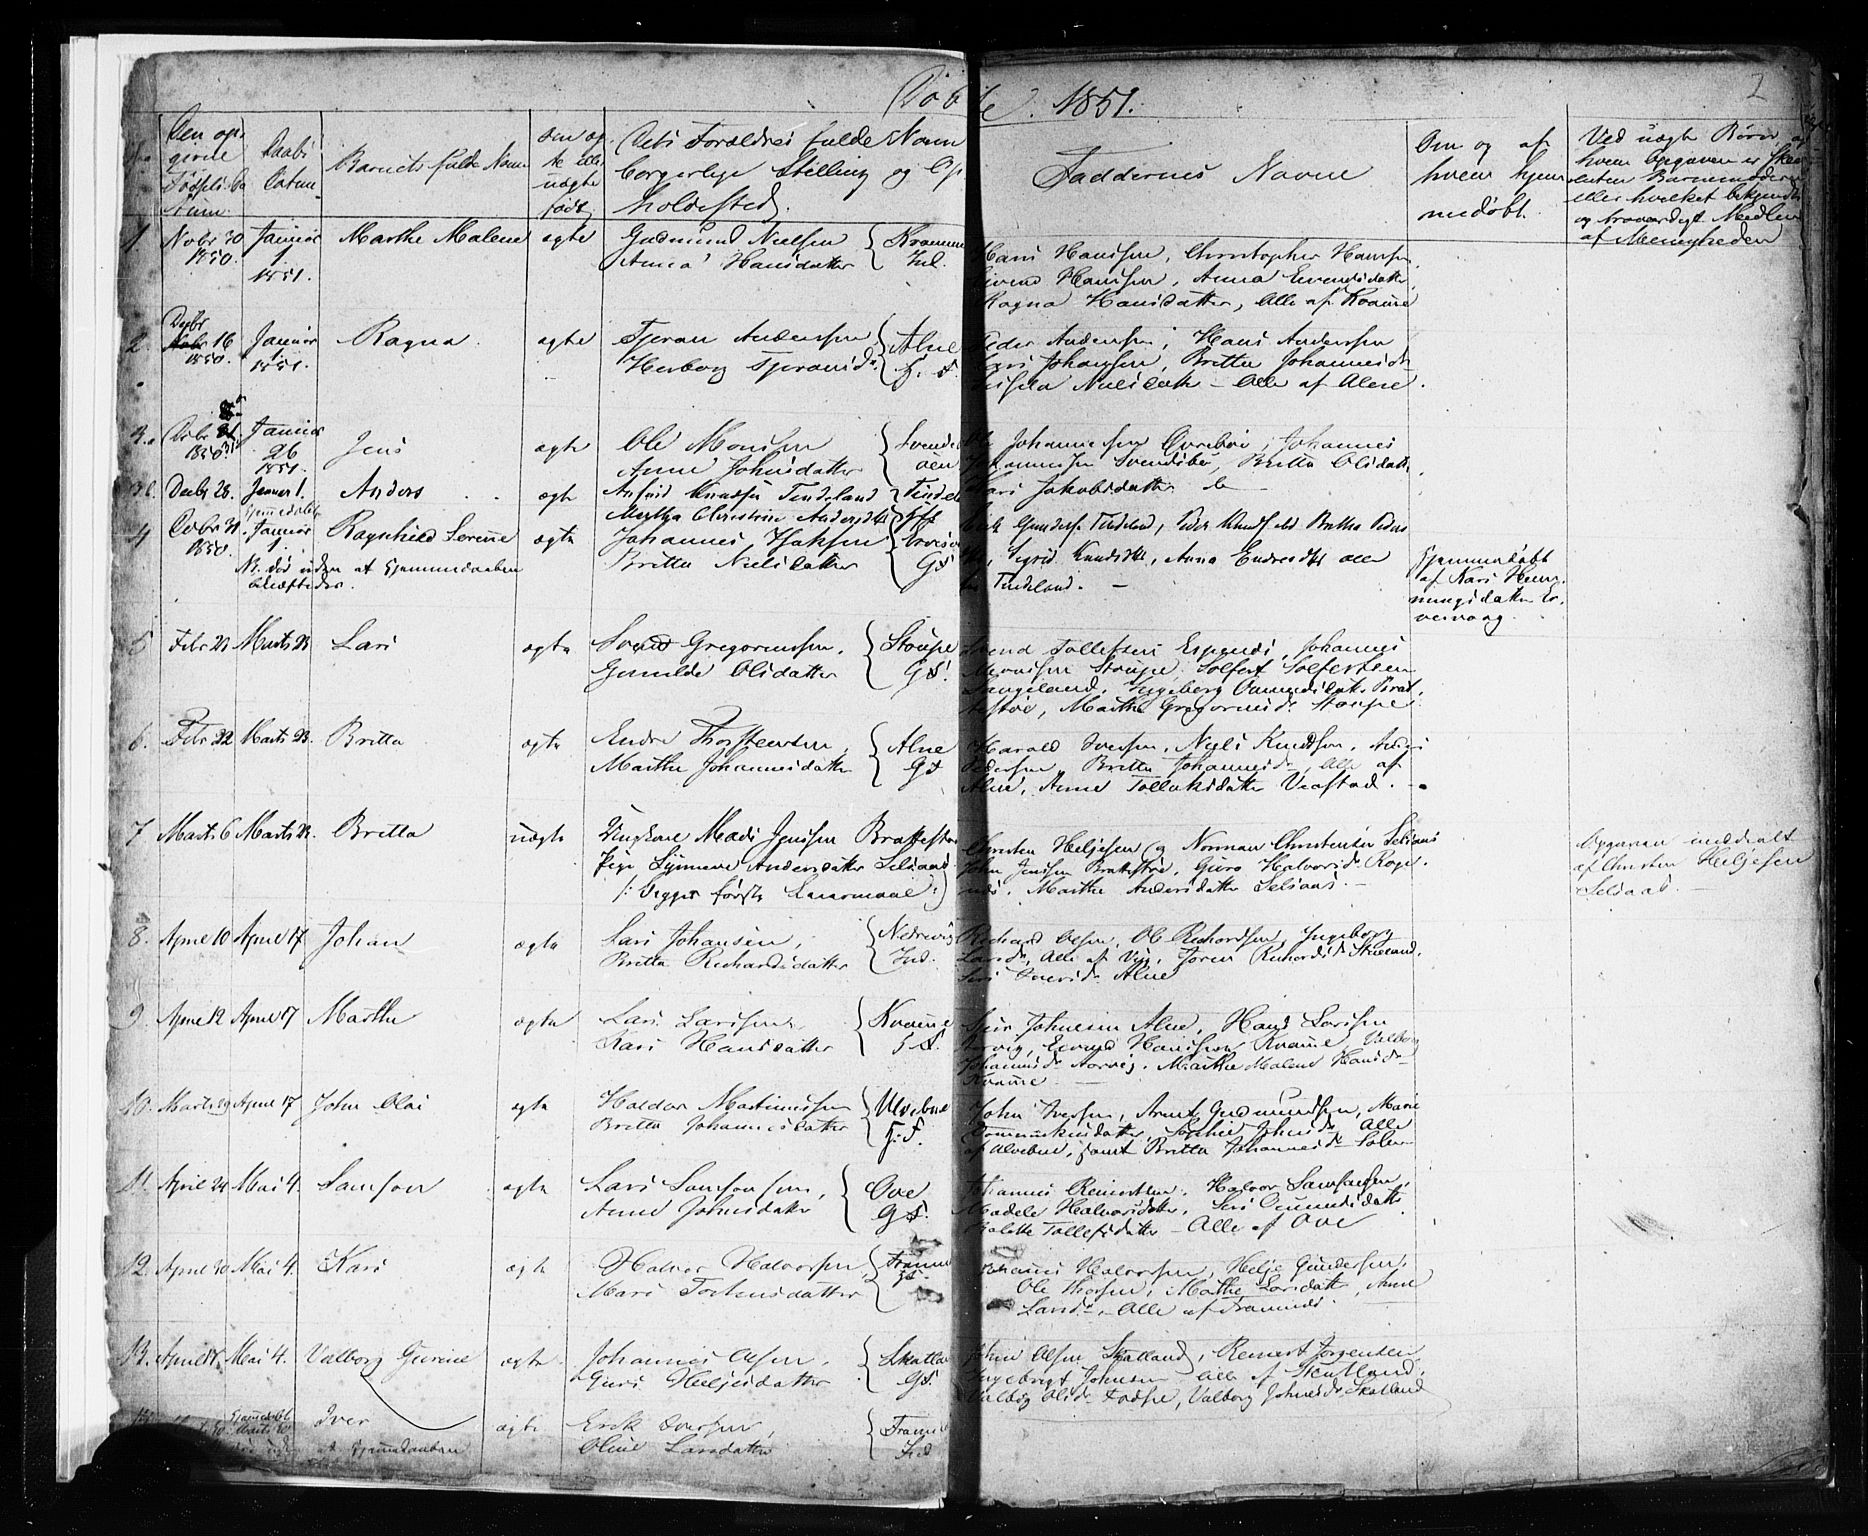 Døbte. 1851.
2
No
Den op-
givne
Fødsels Da
tum
Daabs
Datum
Barnets fulde Navn
Om æg-
te eller
uægte
født
Dets Forældres fulde Navn
borgerlige Stilling og Op
holdssted.
Faddernes Navne
Om og af
hvem hjem
medøbt.
Ved uægte Børn, af
hvem Opgaven er skeet
enten Barnemoderen
eller hvilket bekjendt
og troværdigt Medlem
af Menigheden
1. Nobr 30 1850. Januar 1 1851. Marthe Malene ægte
Gudmund Nielsen
Anna Hansdatter
Kvamme
Ind.
Hans Hanssen, Christopher Hanssen,
Eivind Hanssen, Anna Eivendsdatter
Ragna Hansdatter, Alle af Kvamme
2. Decbr 16 1850. Januar 1 1851. Ragna ægte
Tjeran Anderssen
Herborg Tjeransd.
Alne
Peder Anderssen, Hans Anderssen
Lars Johanssen, Britta Johannesd.
Nielsdatt – Alle af Alne.
3. Decbr 31 1850. Januar 26 1851. Jens ægte
Ole Monssen
Anne Johnsdatter
Svendsb
oen
Ole Johannessen Øvrebøe, Johannes
Johannessen Svendsbøe, Britta Olsdatt.
Kari Jakobsdatter
3 b. Decbr 28. Januar 1. Anders ægte
Knudsen Tindeland
Martha Christine Andersdtr
Tindel
Gunders. Tindeland, Peder Knudsen Britha Peders
Sigrid Knudsdtr, Anna Endresdtr alle
Tindeland. –
4 Decbr 31 1850. Hjemmedøbt Januar 1. Ragnhild Serine ægte
Johannes Isaksen
Britta Nielsdatter
GS
NB. død uden at Hjemmedaaben
bekræftedes.
Hjemmedøbt
af Kari Hem-
mingsdatter Er-
vesvaag.
5 Febr 21 Marts 23 Lars ægte
Svend Gregoriussen,
Gunilde Olsdatter
Stoupe
GS.
Svend Tollefsen Espenes, Johannes
Monssen Stoupe, Solfest Solfestsen
Langeland, Ingeborg Ommundsdatter Brat-
testøe, Marthe Gregoriusd. Stoupe.
6. Febr 22 Marts 23. Britta ægte
Endre Thorsteensen,
Marthe Johannesdatter
Alne
GS
Harald Iverssen, Niels Knudssen, Anders
Pederssen, Britta Johannesd., Alle af
Alne, Anne Tollaksdatter Veastad. –
7 Marts 6 Marts 23. Britta uægte
Ungkarl Mads Jenssen Brattestøe
Pige Synneve Andersdatter Selsaas
/: Begges første Leiermaal :/
Christen Heljesen og Norman Christensen Selsaas
John Jenssen Brattestøe, Guro Halvorsd. Roge-
nes, Marthe Andersdatter Selsaas. –
Opgaven meddelt
af Christen Heljesen
Selsaas. –
8. April 10 April 17 Johan ægte
Lars Johansen,
Britta Richardsdatter
Nedrevig
Ind.
Richard Olsen, Ole Richardsen, Ingeborg
Larsd., Alle af Vig, Toren Richardsd.
Siri Iversd. Alne
9. April 12 April 17 Marthe ægte
Lars Larssen,
Kari Hansdatter
Kvamme
Johnssen Alne, Hans Larssen
Eivind Hanssen Kvamme, Valborg
Johannesd. Aarvig, Marthe Malene Hansd.
Kvamme –
10. Marts 29 April 17 John Olai ægte
Haldor Martinussen
Britta Johannesdatter
Ulvebne
John Iverssen, Arnt Gudmundssen, Marie
Sophie Johnsd. Alle
af Ulvebne, samt Britta Johannesd.
11. April 24 Mai 4. Samson ægte
Lars Samsonsen,
Anne Johnsdatter
Ove
GS.
Johannes Reinertsen, Halvor Samsonsen,
Madele Halvorsdatter, Siri Ommundsdatt.
Malene Tollefsdatter – Alle af Ove
12. April 30 Mai 4. Kari ægte
Halvor Halvorssen,
Mari Torkelsdatter
Framnes
GS.
Johannes Halvorssen, Helje Gunderssen,
Ole Thorssen, Marthe Larsdatt., Anne
Larsd. – Alle af Framnes.
13. April Mai 4. Valborg Gurine ægte
Johannes Olsen,
Guri Heljesdatter
Skatla
GS.
John Olsen Skatland, Reinert Jørgensen,
Ingebrigt Johnsen Alle af Skatland.
Valborg Olsd. Valborg Johnsd. Skatland
Hjemmedøbt Marts 30 Iver ægte
Erik Iverssen,
Oline Larsdatter
Framnes
Ind
at Hjemmedaaben